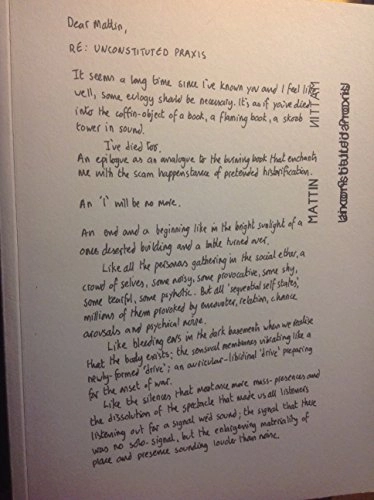 Dear Mattin,
RE: UNCONSTITUTED PRAXIS
It seems a long time since I've known you and I feel like,
well, some eulogy should be necessary. It's as if you've died
into the coffin-object of a book, a flaming book, a skoob
tower in sound.
I've died too.
An epilogue as an analogue to the burning book that enchants
me with the scam happenstance of pretended historification.
An 'I' will be no more.
An end and a beginning like in the bright sunlight of a
once deserted building and a table turned over.
Like all the personas gathering in the social ether, a
crowd of selves, some noisy, some provocative, some shy,
some tearful, some psychotic. But all 'sequential self states',
millions of them provoked by encounter, relation, chance
arousals and psychical noise.
Like bleeding ears in the dark basements when we realise
that the body exists: the sensual membranes vibrating like a
newly-formed 'drive'; an auricular-libidinal 'drive' preparing
for the onset of war.
Like the silences that meant more mass-presences and
the dissolution of the spectacle that made us all listeners
listening out for a signal we'd sound; the signal that there
was no solo-signal, but the enlargening materiality of
place and presence sounding louder than noise.
MATTIN
MATTIN